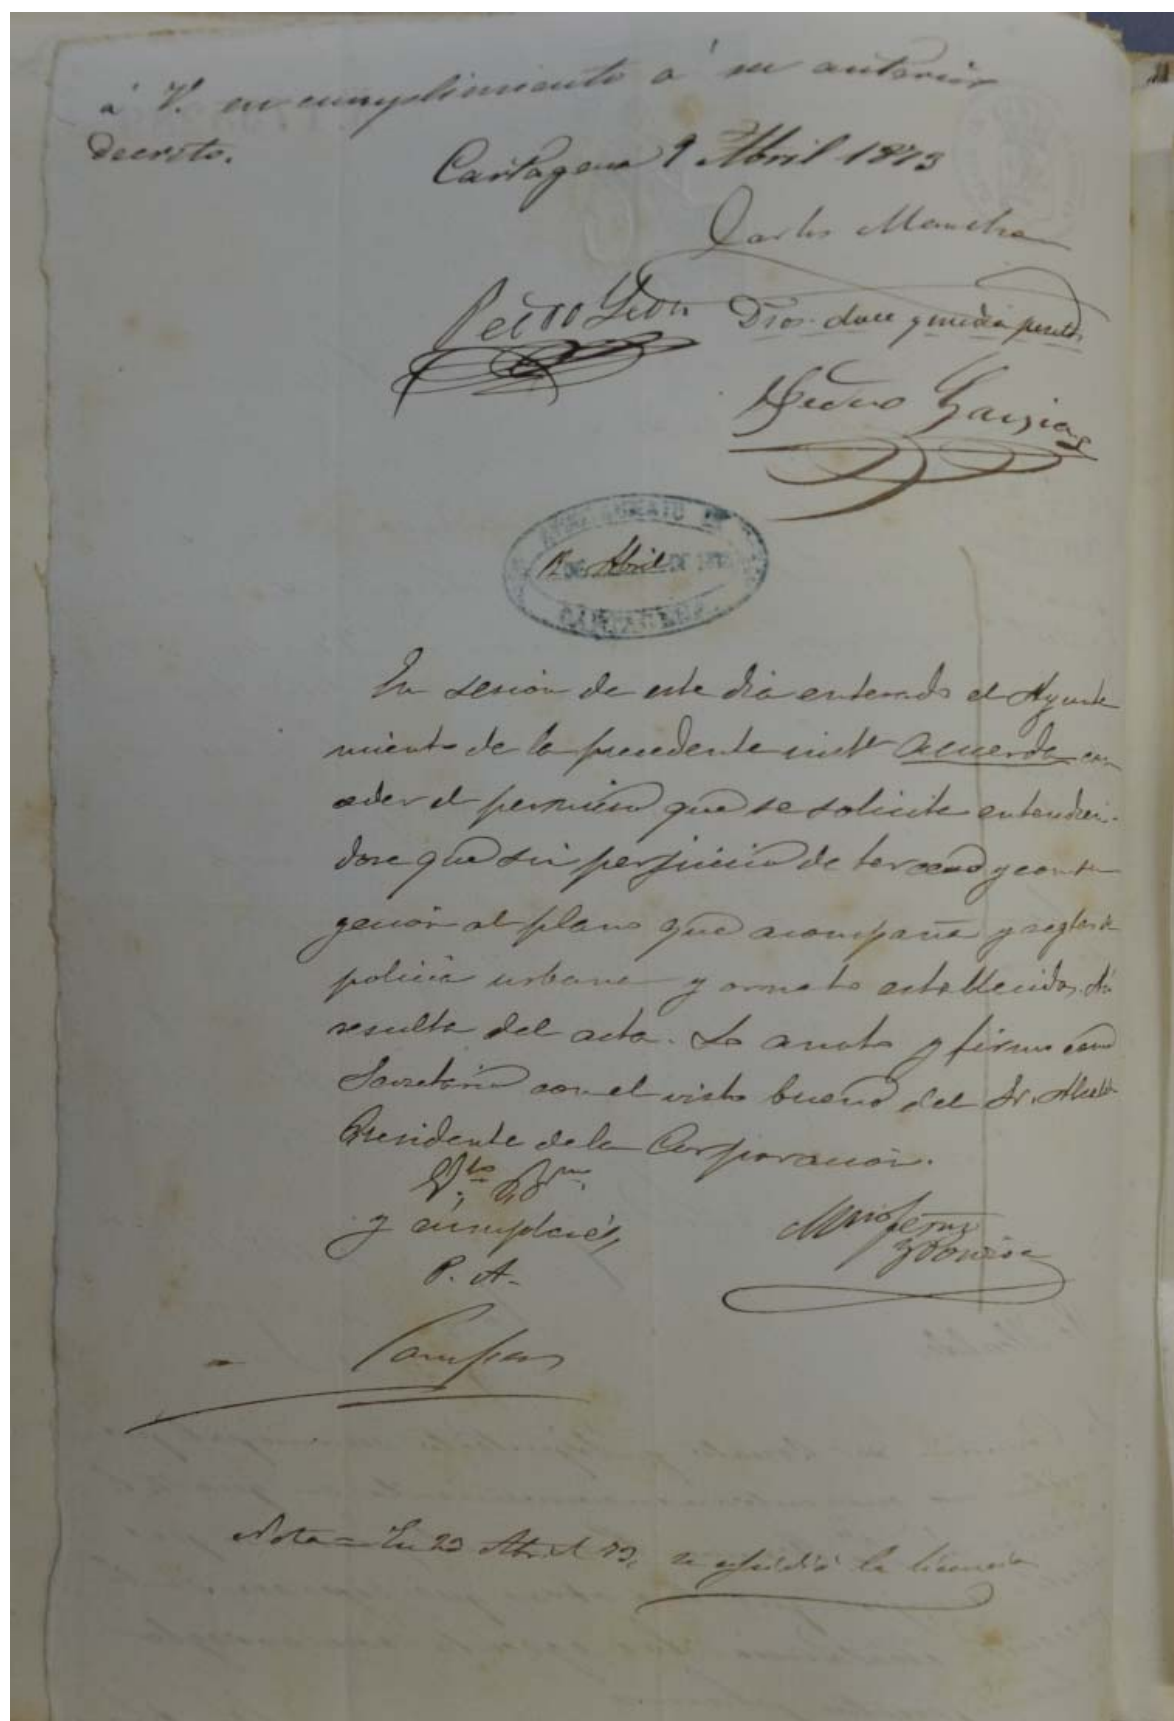 á V. en cumplimiento á su anterior
decreto.
Cartagena 9 Abril 1873
Carlos Mancha
Pedro León
Dros. doce y media pesetas
Pedro García
AYUNTAMIENTO
12 DE Abril DE 187
CARTAGENA
En sesión de este dia enterado el Ayunta
miento de la precedente inst.ª acuerda con
ceder el permiso que se solicita entendien-
dose que sin perjuicio de tercero y con su
gecion al plano que acompaña y reglas de
policia urbana y ornato establecidas. Asi
resulta del acta. Lo anoto y firmo como
Secretario con el visto bueno del Sr. Alcalde
Presidente de la Corporacion.
V.to B.no
y cúmplase,
P. A.
Nota = En 23 Abril 73, se espidió la licencia